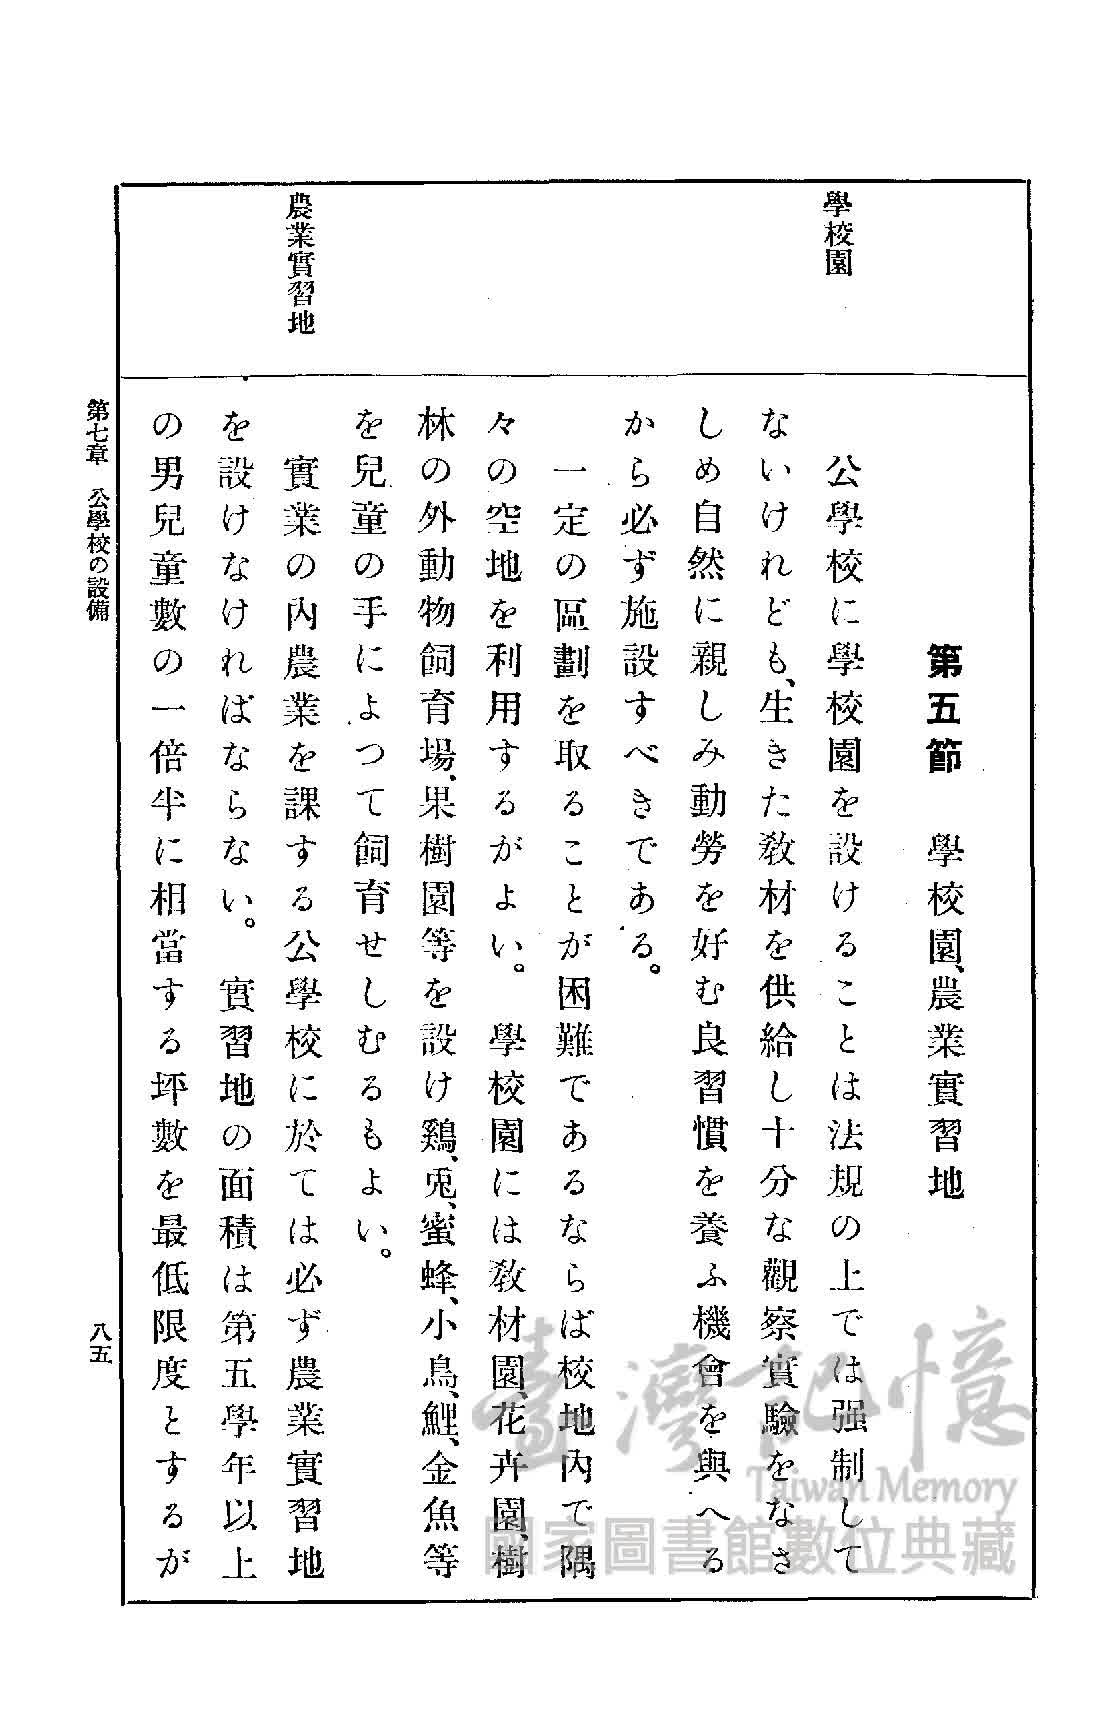 第五節　學校園、農業實習地
學校園
公學校に學校園を設けることは法規の上では强制して
ないけれども、生きた敎材を供給し十分な觀察實驗をなさ
しめ自然に親しみ動勞を好む良習慣を養ふ機會を與へる
から必ず施設すべきである。
一定の區劃を取ることが困難であるならば校地內で隅
々の空地を利用するがよい。學校園には敎材園、花卉園、樹
林の外動物飼育場、果樹園等を設け鷄、兎、蜜蜂、小鳥、鯉、金魚等
を兒童の手によつて飼育せしむるもよい。
農業實習地
實業の內農業を課する公學校に於ては必ず農業實習地
を設けなければならない。實習地の面積は第五學年以上
の男兒童數の一倍半に相當する坪數を最低限度とするが
第七章　公學校の設備
八五
臺灣記憶
Taiwan Memory
國家圖書館數位典藏